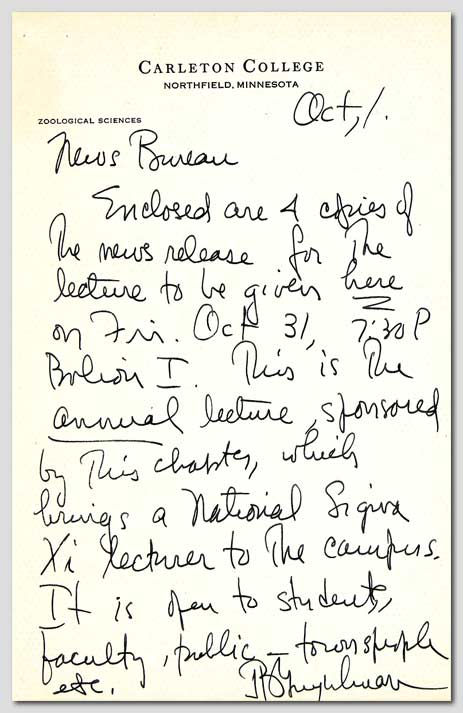 CARLETON COLLEGE
NORTHFIELD, MINNESOTA
Oct, 1.
ZOOLOGICAL SCIENCES
News Bureau
Enclosed are 4 copies of
the news release for the
lecture to be given here
on Fri. Oct 31, 7:30 P
I. This is the
annual lecture, sponsored
by this chapter, which
brings a National Sigma
Xi lecturer to the campus.
It is open to students,
faculty, public – townspeople
etc.